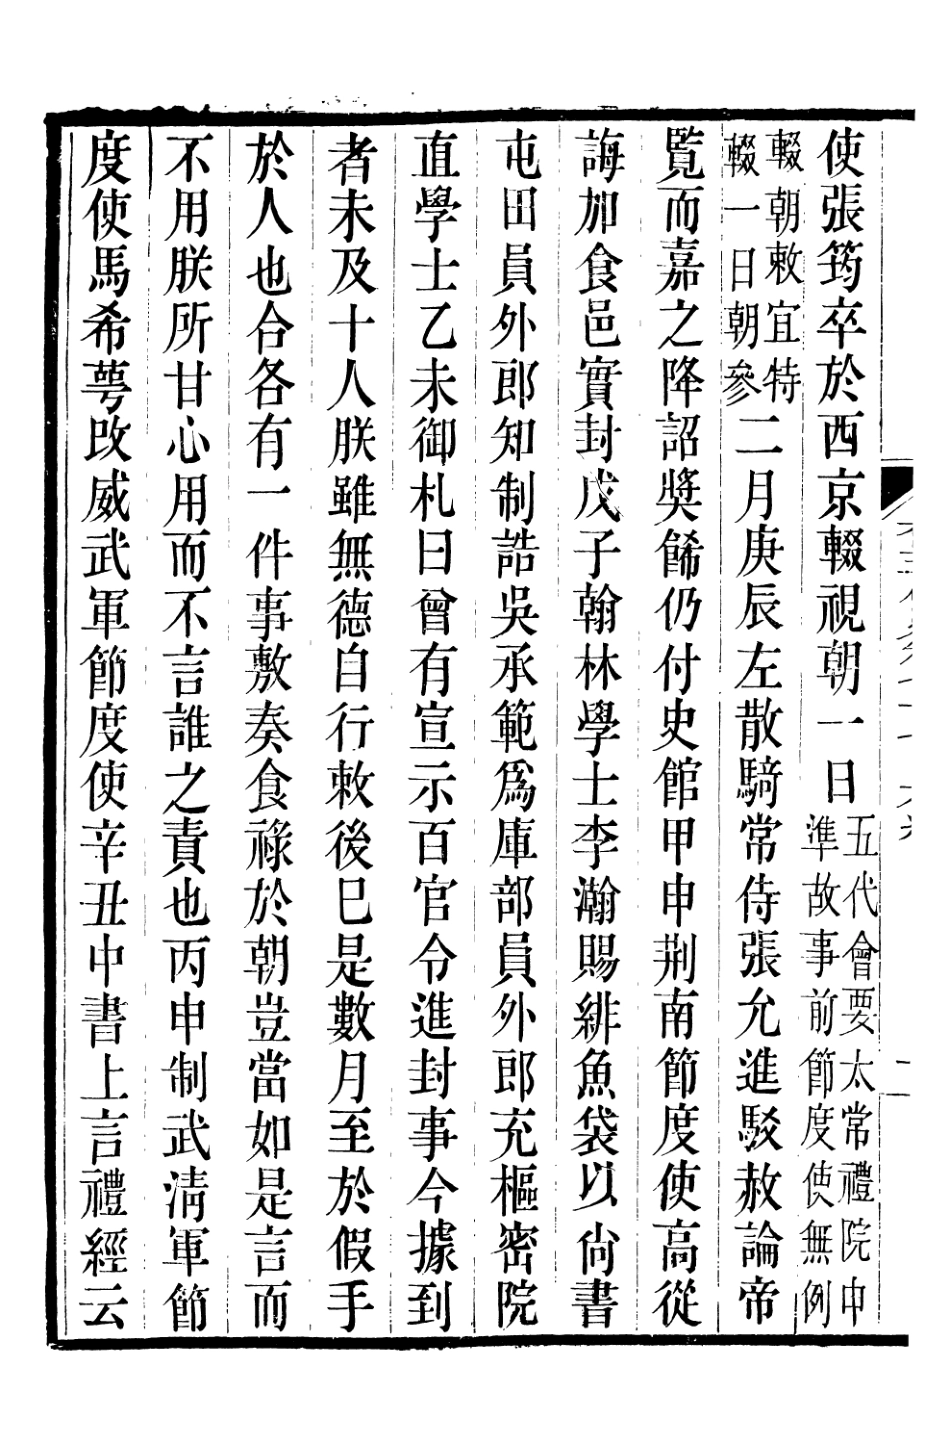 使張筠卒於西京輟視朝一日五代會要太常禮院申
準故事前節度使無例
輟朝敕宜特
輟一日朝參二月庚辰左散騎常侍張允進駁赦論帝
覧而嘉之降詔獎飾仍付史館甲申荆南節度使高從
誨加食邑實封戊子翰林學士李瀚賜緋魚袋以尙書
屯田員外郎知制誥吳承範爲庫部員外郎充樞密院
直學士乙未御札曰曾有宣示百官令進封事今據到
者未及十人朕雖無德自行敕後巳是數月至於假手
於人也合各有一件事敷奏食祿於朝豈當如是言而
不用朕所甘心用而不言誰之責也丙申制武清軍節
度使馬希萼改威武軍節度使辛丑中書上言禮經云